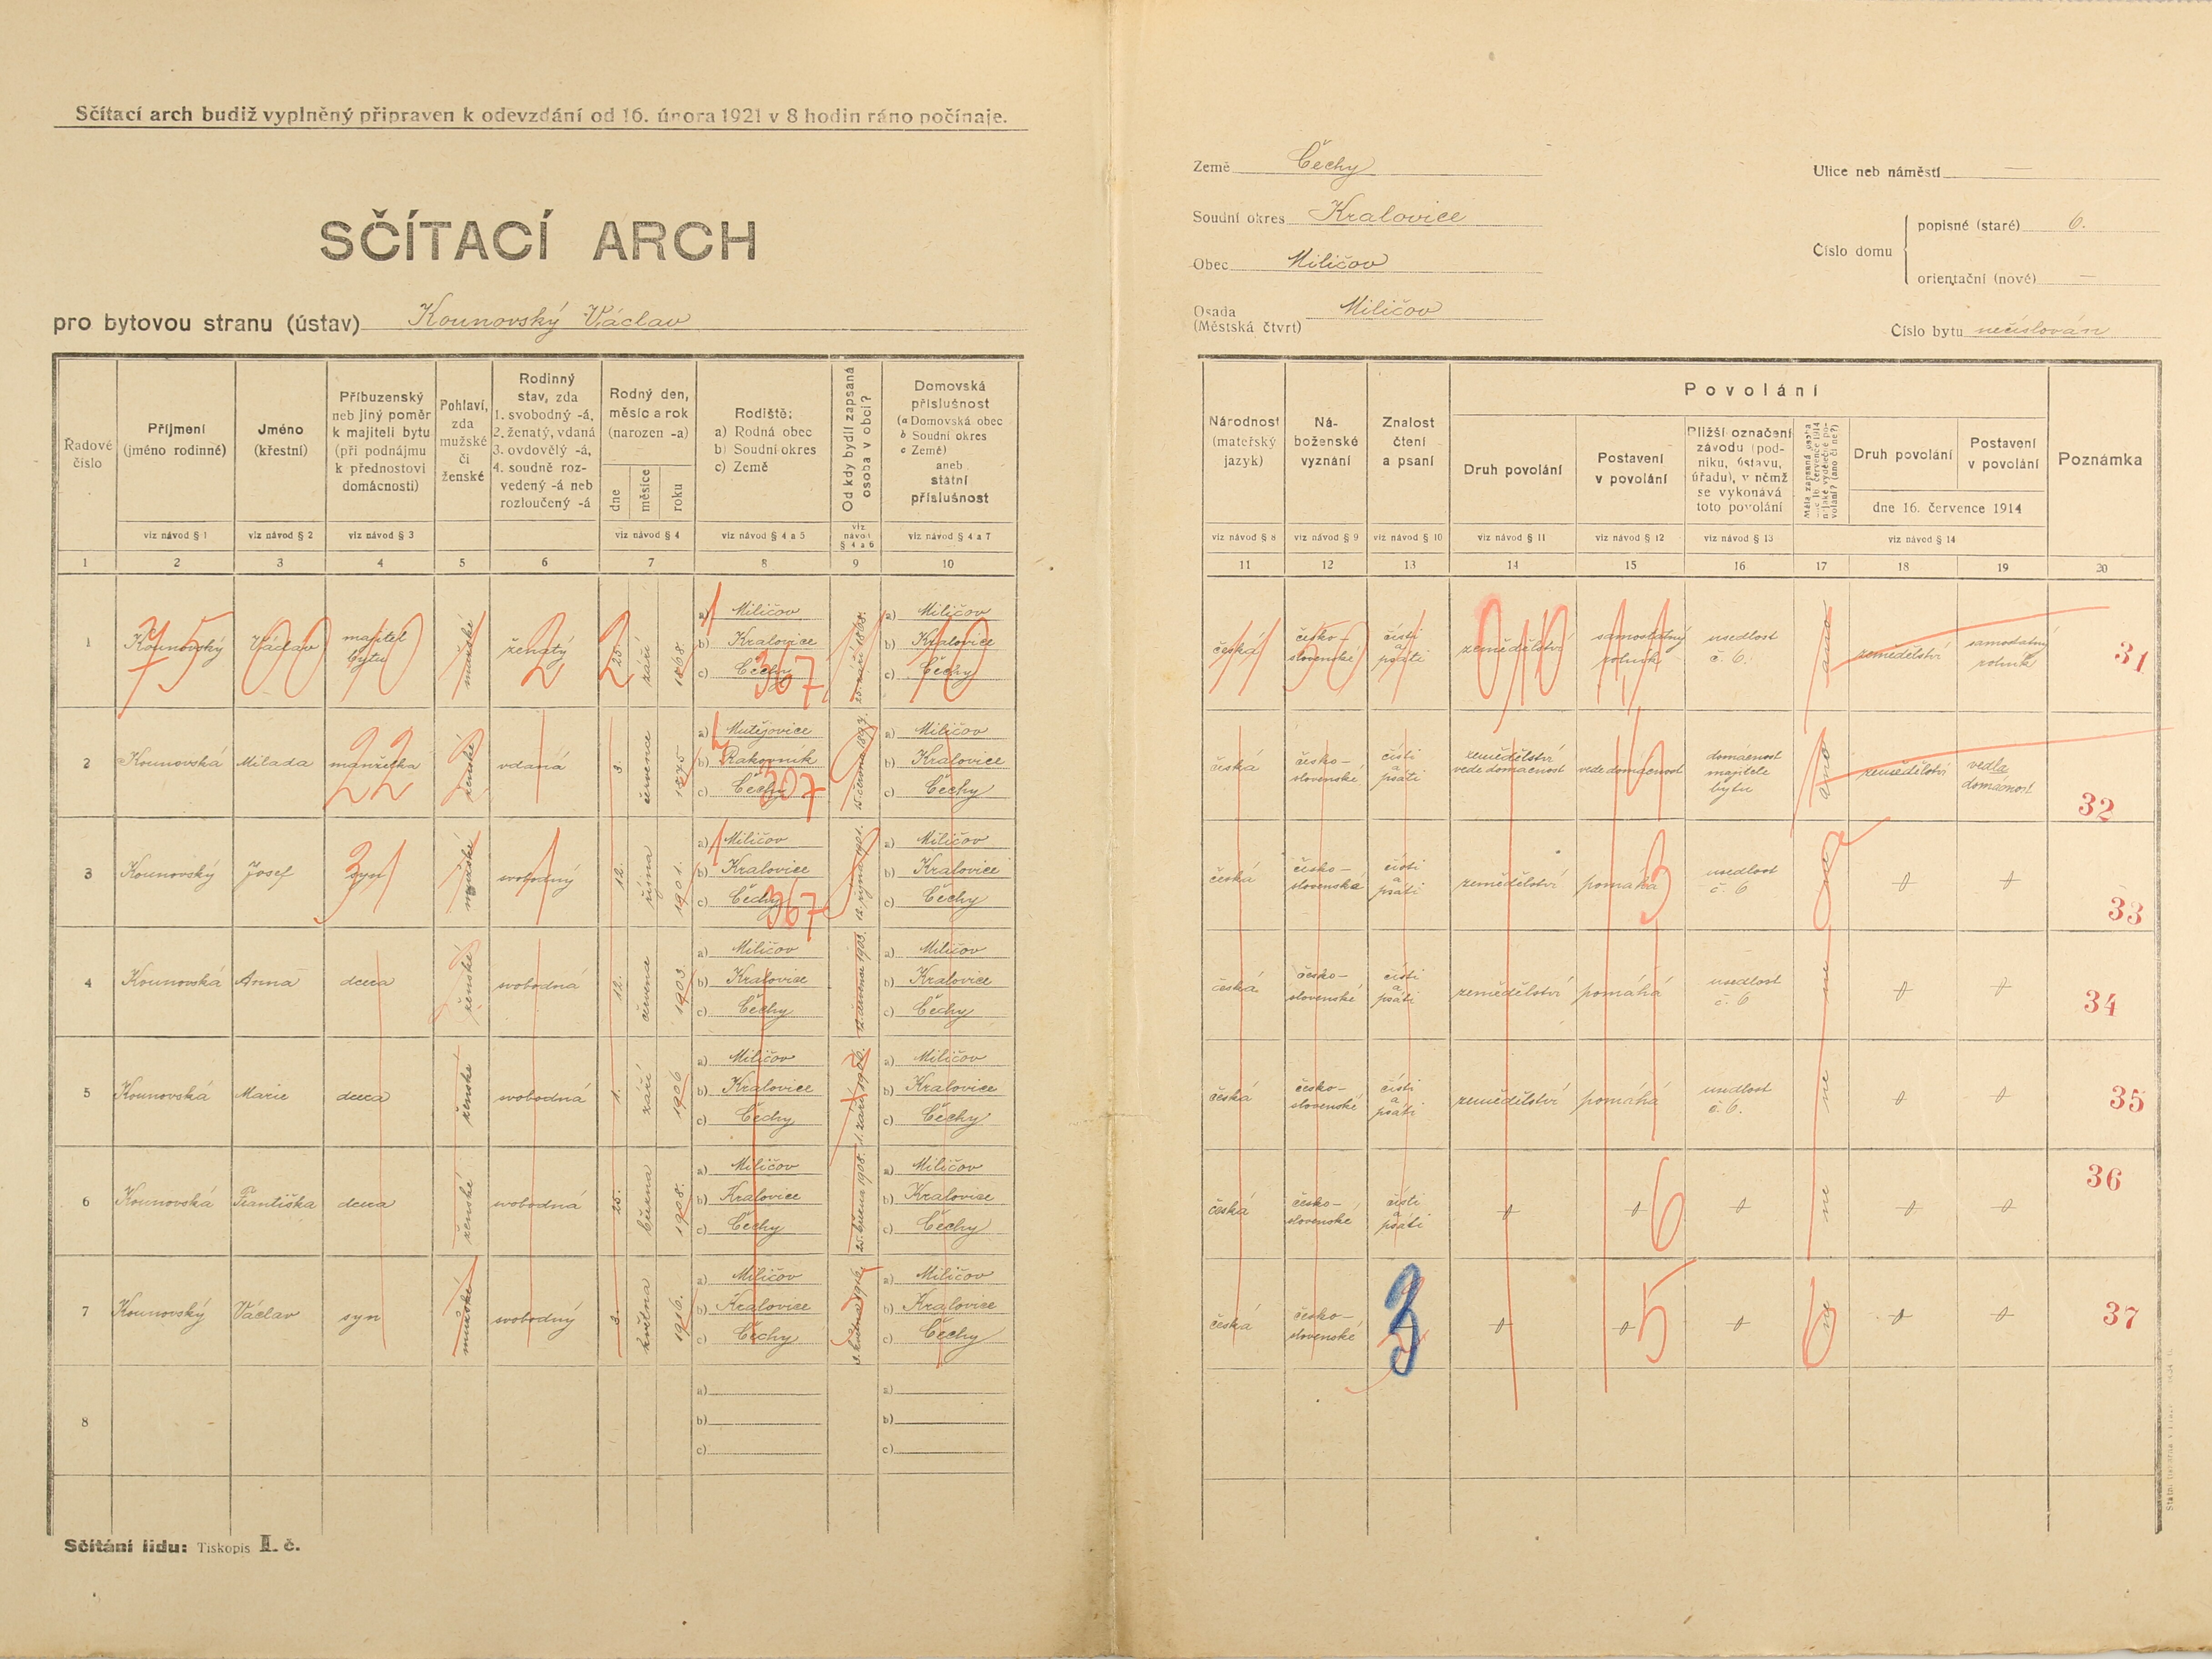 Sčítací arch budiž vyplněný připraven k odevzdání od 16. února 1921 v 8 hodin ráno počínaje.
SČÍTACÍ ARCH
pro bytovou stranu (ústav) Kounovský Václav
Země Čechy
Soudní okres Kralovice
Obec Miličov
Osada Miličov
(Městská čtvrť)
Ulice neb náměstí —
Číslo domu
popisné (staré) 6.
orientační (nové) —
Číslo bytu nečíslován
Řadové číslo
Příjmení (jméno rodinné)
Jméno (křestní)
Příbuzenský neb jiný poměr k majiteli bytu (při podnájmu k přednostovi domácnosti)
Pohlaví, zda mužské či ženské
Rodinný stav, zda 1. svobodný -á, 2. ženatý, vdaná 3. ovdovělý -á, 4. soudně rozvedený -á neb rozloučený -á
Rodný den, měsíc a rok (narozen -a)
dne měsíce roku
Rodiště:
a) Rodná obec
b) Soudní okres
c) Země
Od kdy bydlí zapsaná osoba v obci?
Domovská příslušnost
(a Domovská obec
b Soudní okres
c Země)
aneb státní příslušnost
viz návod § 1 viz návod § 2 viz návod § 3 viz návod § 4 viz návod § 4 a 5 viz návod § 4 a 6 viz návod § 4 a 7
1 2 3 4 5 6 7 8 9 10
Národnost (mateřský jazyk)
Náboženské vyznání
Znalost čtení a psaní
Povolání
Druh povolání
Postavení v povolání
Bližší označení závodu (podniku, ústavu, úřadu), v němž se vykonává toto povolání
Druh povolání
Postavení v povolání
dne 16. července 1914
Poznámka
viz návod § 8 viz návod § 9 viz návod § 10 viz návod § 11 viz návod § 12 viz návod § 13 viz návod § 14
11 12 13 14 15 16 17 18 19 20
1 Kounovský Václav majitel bytu mužské ženatý 25. září 1868
a) Miličov
b) Kralovice
c) Čechy
25. září 1868.
a) Miličov
b) Kralovice
c) Čechy
česká česko-slovenské čísti a psáti zemědělství samostatný rolník usedlost č. 6. ano zemědělství samostatný rolník 31
2 Kounovská Milada manželka ženské vdaná 3. července 1875
a) Mutějovice
b) Rakovník
c) Čechy
15. června 1897.
a) Miličov
b) Kralovice
c) Čechy
česká česko-slovenské čísti a psáti zemědělství vede domácnost vede domácnost domácnost majitele bytu ano zemědělství vedla domácnost 32
3 Kounovský Josef syn mužské svobodný 12. října 1901.
a) Miličov
b) Kralovice
c) Čechy
12. října 1901.
a) Miličov
b) Kralovice
c) Čechy
česká česko-slovenská čísti a psáti zemědělství pomáhá usedlost č. 6 33
4 Kounovská Anna dcera ženské svobodná 12. července 1903.
a) Miličov
b) Kralovice
c) Čechy
12. července 1903.
a) Miličov
b) Kralovice
c) Čechy
česká česko-slovenské čísti a psáti zemědělství pomáhá usedlost č. 6 ne 34
5 Kounovská Marie dcera ženské svobodná 1. září 1906
a) Miličov
b) Kralovice
c) Čechy
1. září 1906.
a) Miličov
b) Kralovice
c) Čechy
česká česko-slovenské čísti a psáti zemědělství pomáhá usedlost č. 6. ne 35
6 Kounovská Františka dcera ženské svobodná 25. března 1908.
a) Miličov
b) Kralovice
c) Čechy
25. března 1908.
a) Miličov
b) Kralovice
c) Čechy
česká česko-slovenské čísti a psáti ne 36
7 Kounovský Václav syn mužské svobodný 3. května 1916.
a) Miličov
b) Kralovice
c) Čechy
3. května 1916.
a) Miličov
b) Kralovice
c) Čechy
česká česko-slovenské 3 ne 37
8
a)
b)
c)
a)
b)
c)
Sčítání lidu: Tiskopis I. č.